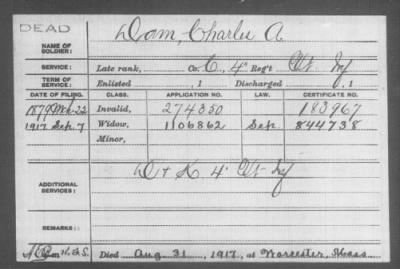 DEAD
NAME OF SOLDIER: Dam, Charles A.
SERVICE: Late rank, Co. C, 4" Reg't Vt. Inf
TERM OF SERVICE: Enlisted , 1 Discharged , 1
DATE OF FILING. CLASS. APPLICATION NO. LAW. CERTIFICATE NO.
1879 Mch-22 Invalid, 274350 183967
1917 Sep. 7 Widow, 1106862 Sep. 844738
Minor,
ADDITIONAL SERVICES: D + 4" Vt Inf
REMARKS:
N. & S. Died Aug 31, 1917, at Worcester, Mass.